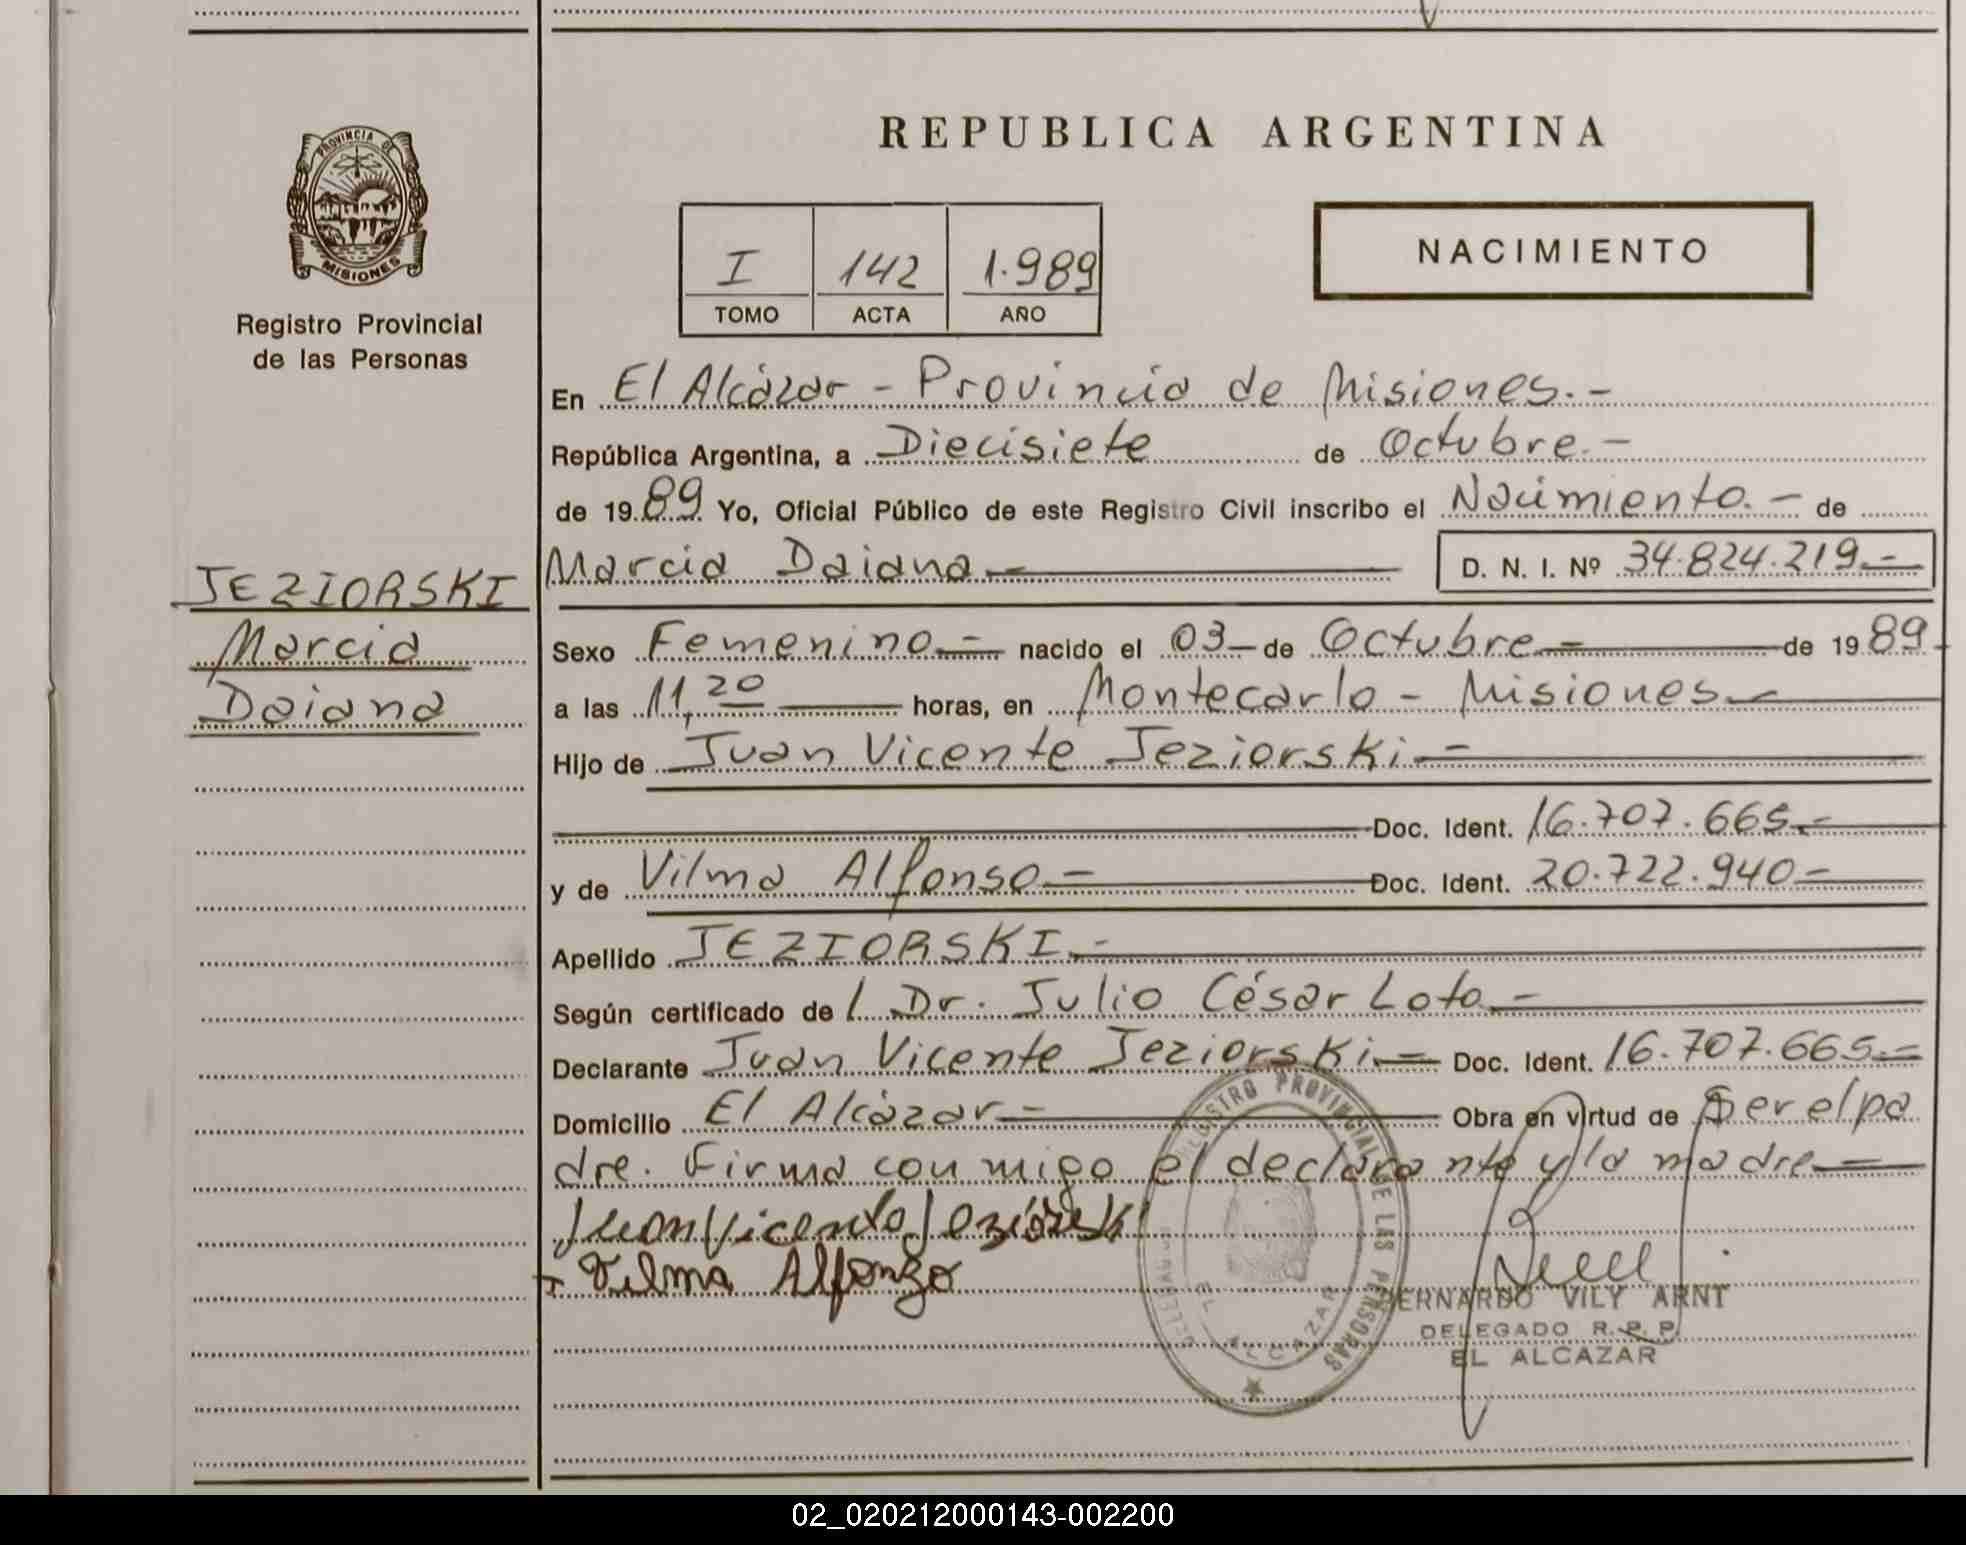 PROVINCIA DE
MISIONES
Registro Provincial
de las Personas
JEZIORSKI
Marcia
Daiana
REPUBLICA ARGENTINA
I 142 1.989
TOMO ACTA AÑO
NACIMIENTO
En El Alcázar - Provincia de Misiones.-
República Argentina, a Diecisiete de Octubre.-
de 1989 Yo, Oficial Público de este Registro Civil inscribo el Nacimiento.- de
Marcia Daiana D. N. I. Nº 34.824.219.-
Sexo Femenino.- nacido el 03 de Octubre.- de 1989
a las 11,20 horas, en Montecarlo - Misiones
Hijo de Juan Vicente Jeziorski.-
Doc. Ident. 16.707.665.-
y de Vilma Alfonso.- Doc. Ident. 20.722.940.-
Apellido JEZIORSKI.-
Según certificado de / Dr. Julio César Loto.-
Declarante Juan Vicente Jeziorski.- Doc. Ident. 16.707.665.-
Domicilio El Alcázar.- Obra en virtud de Ser el pa
dre. Firma con migo el declarante y la madre.-
Juan Vicente Jeziorski
Vilma Alfonzo
REGISTRO PROVINCIAL DE LAS PERSONAS
EL ALCAZAR
BERNARDO VILY ARNT
DELEGADO R. P. P.
EL ALCAZAR
02_020212000143-002200